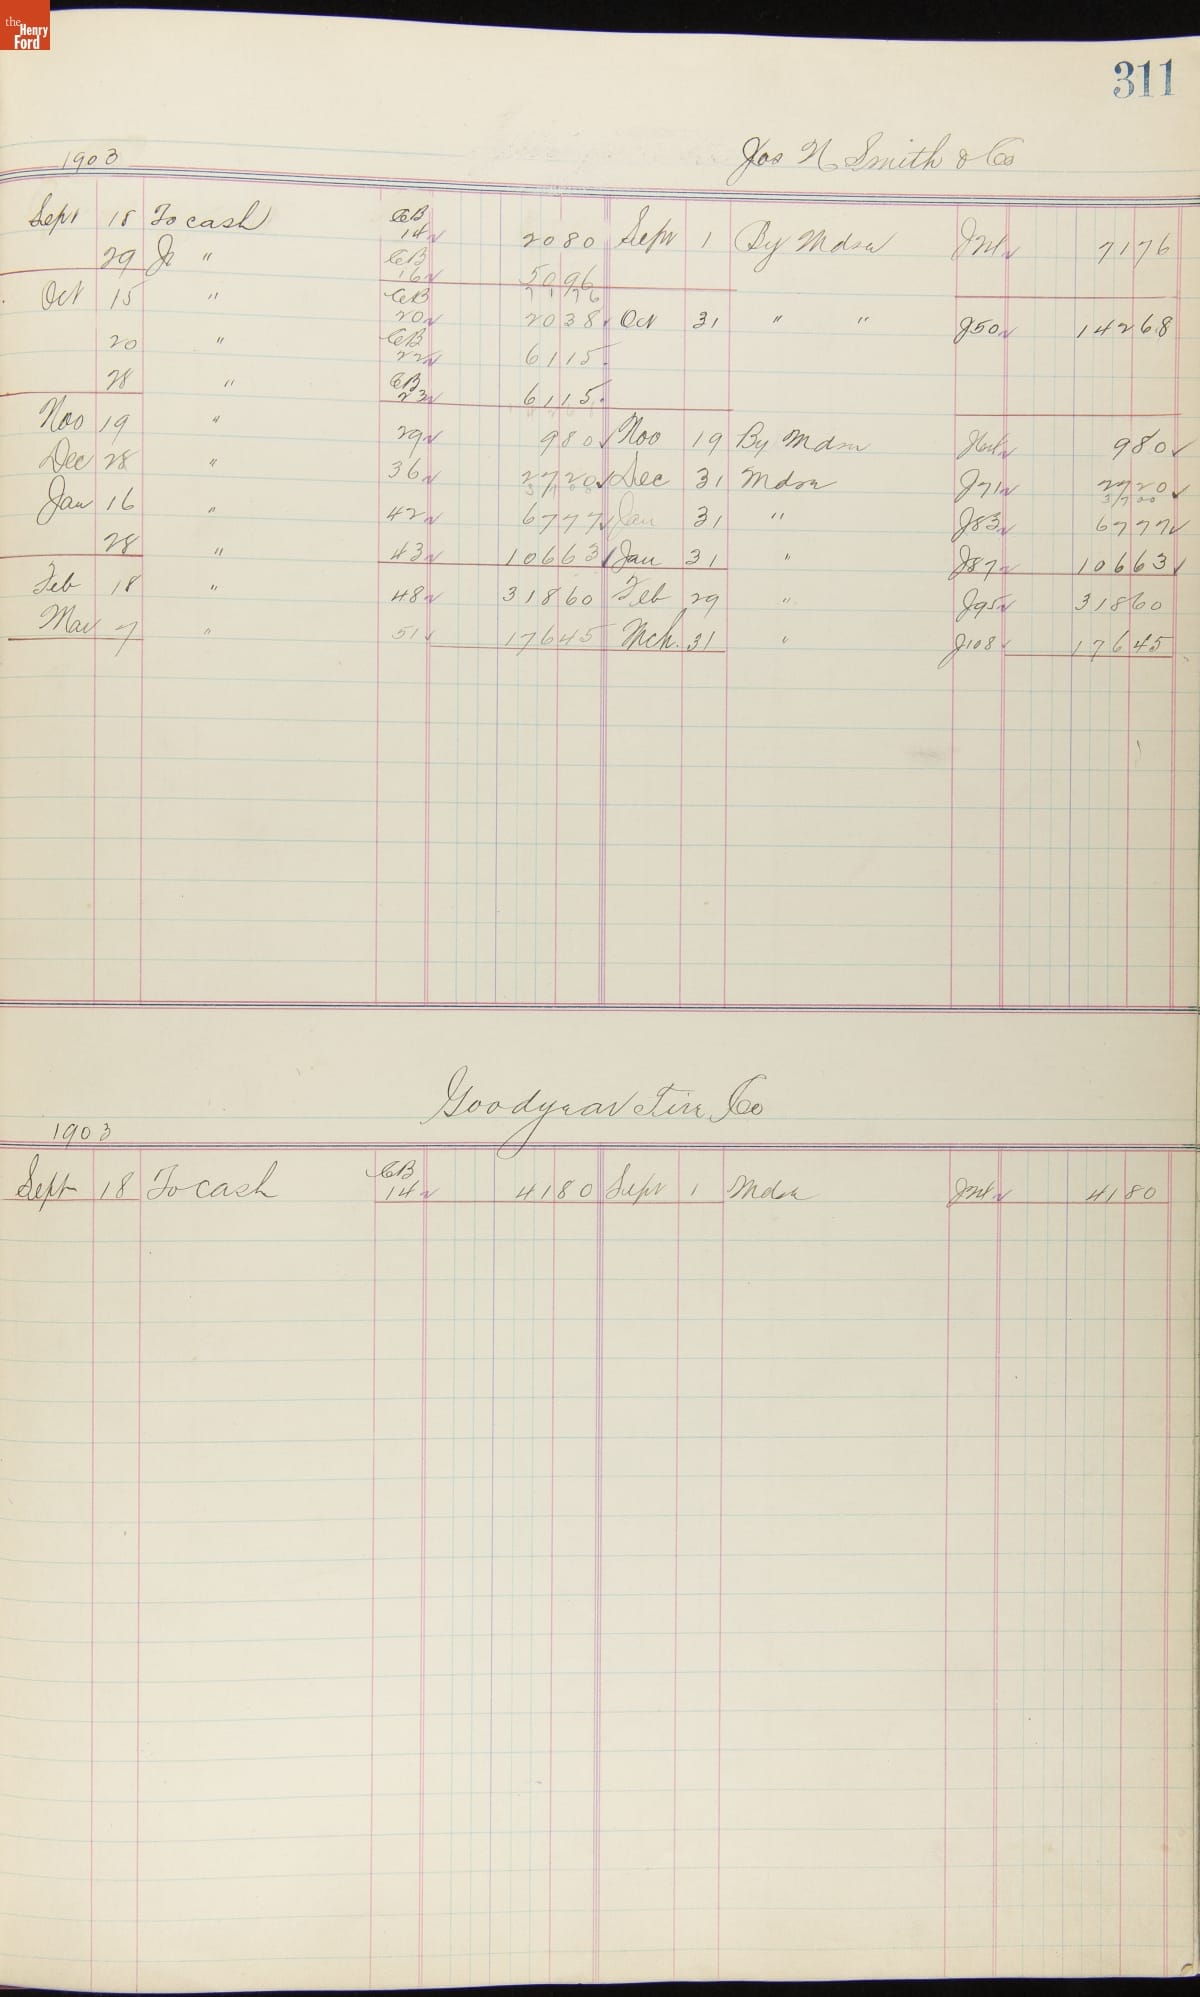 the
Henry
Ford
311
1903 Jos N Smith & Co
Sept 18 To cash CB 14 2080 Sept 1 By Mdse Jnl 7176
29 " CB 16 5096
7176
Oct 15 " CB 20 2038 Oct 31 " " J50 14268
20 " CB 22 6115
28 " CB 23 6115
Nov 19 " 29 980 Nov 19 By Mdse 980
Dec 28 " 36 2720 Dec 31 Mdse J71 2720
3700 3700
Jan 16 " 42 6777 Jan 31 " J83 6777
28 " 43 10663 Jan 31 " J87 10663
Feb 18 " 48 31860 Feb 29 " J95 31860
Mar 7 " 51 17645 Mch. 31 " J108 17645
Goodyear Tire Co
1903
Sept 18 To cash CB 14 4180 Sept 1 Mdse Jnl 4180